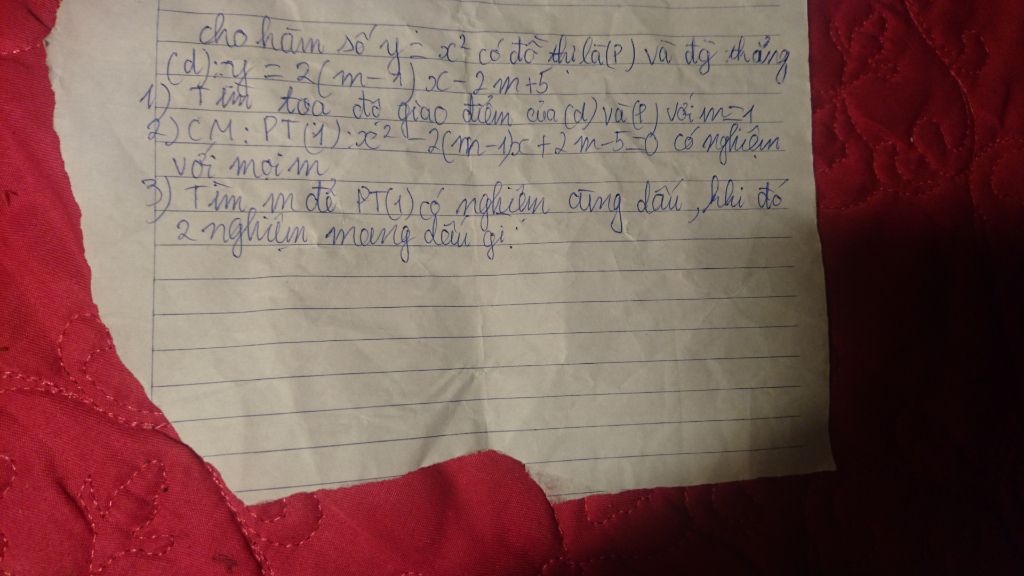 cho hàm số y = x² có đồ thị là (P) và đg thẳng
(d): y = 2(m-1)x - 2m+5
1) Tìm toạ độ giao điểm của (d) và (P) với m=1
2) CM: PT(1): x² - 2(m-1)x + 2m-5=0 có nghiệm
với mọi m
3) Tìm m để PT(1) có nghiệm cùng dấu, khi đó
2 nghiệm mang dấu gì.